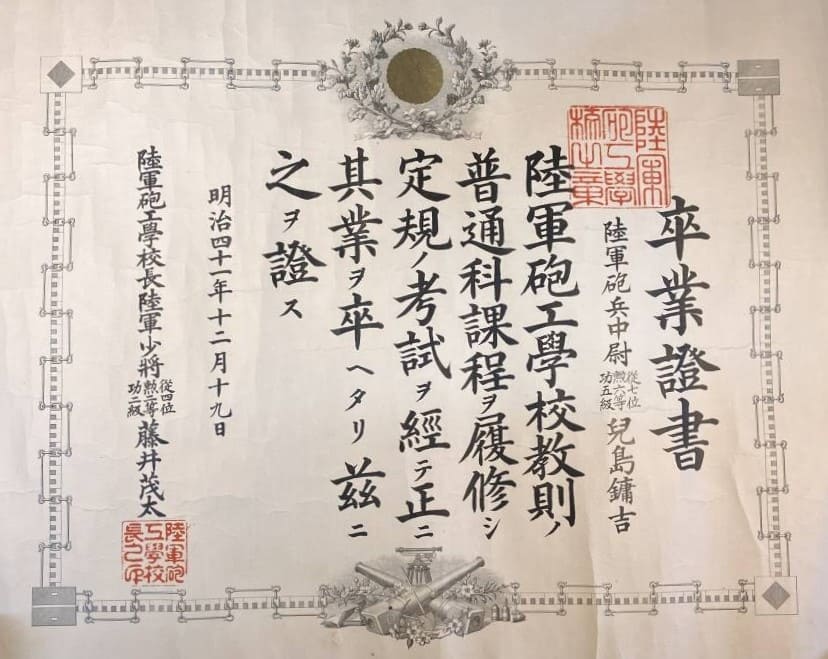 卒業證書
陸軍砲兵中尉從七位勲六等功五級兒島鏞吉
陸軍
砲工學
校之章
陸軍砲工學校教則ノ
普通科課程ヲ履修シ
定規ノ考試ヲ經テ正ニ
其業ヲ卒ヘタリ茲ニ
之ヲ證ス
明治四十一年十二月十九日
陸軍砲工學校長陸軍少將從四位勲二等功二級藤井茂太
陸軍砲
工學校
長之印